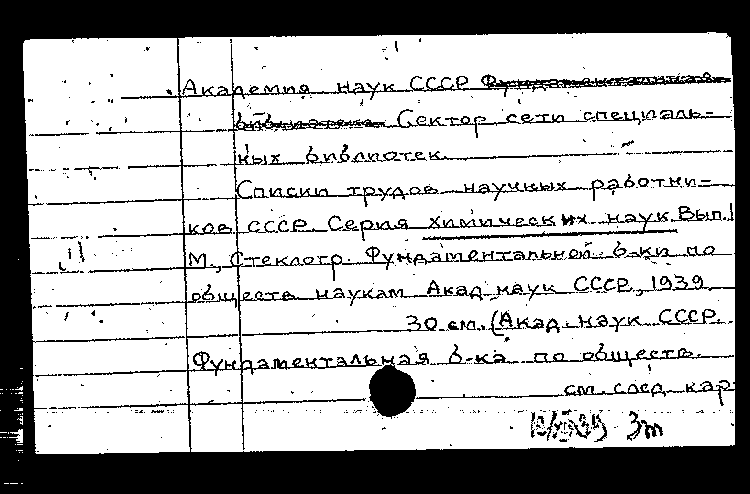 Академия наук СССР Фундаментальная
библиотека. Сектор сети специаль=
ных библиотек.
Списки трудов научных работни=
ков СССР. Серия химических наук. Вып.1
М., Стеклогр. Фундаментальной б-ки по
обществ наукам Акад. наук СССР, 1939.
30 см. (Акад. наук СССР.
Фундаментальная б-ка по обществ.
см. след. кар